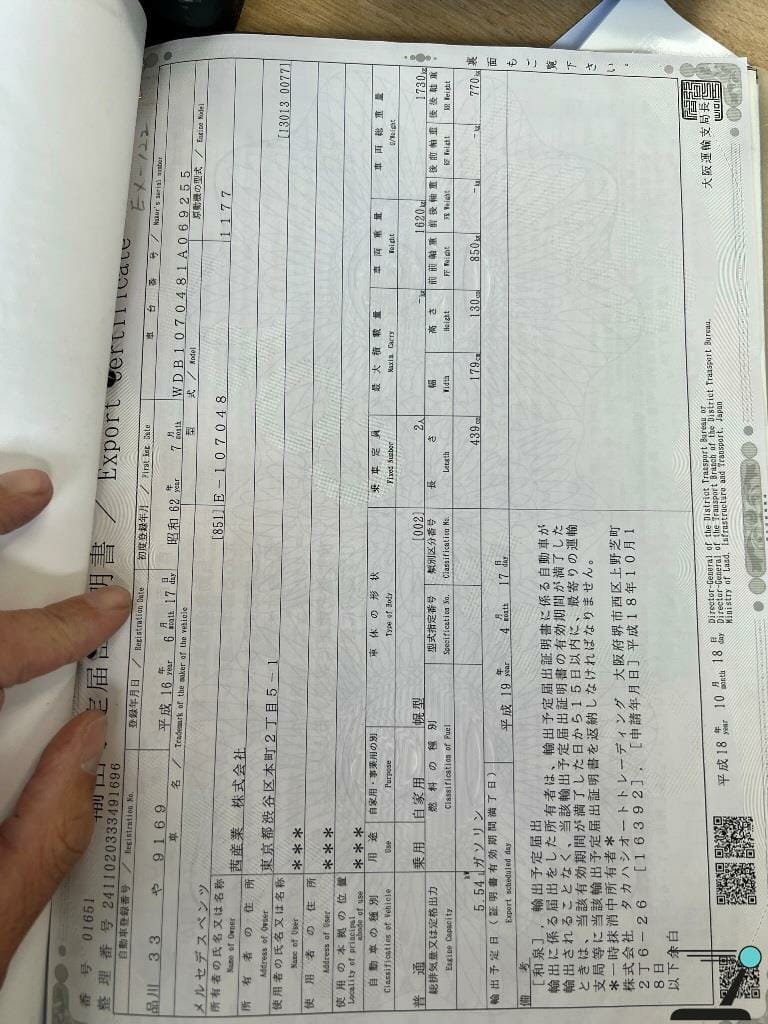 番号 01651
整理番号 241102033349169​6
輸出予定届出証明書 / Export Certificate
EX-122
自動車登録番号 / Registration No.
登録年月日 / Registration Date
初度登録年月 / First Reg. Date
車台番号 / Maker's serial number
品川 33 や 9169
平成16年 6月 17日
year month day
昭和62年 7月
year month
WDB1070481A069255
車名 / Trademark of the maker of the vehicle
型式 / Model
原動機の型式 / Engine Model
メルセデスベンツ
[851]
E-107048
117
[13013 0077]
所有者の氏名又は名称
Name of Owner
茜産業 株式会社
所有者の住所
Address of Owner
東京都渋谷区本町2丁目5-1
使用者の氏名又は名称
Name of User
***
使用者の住所
Address of User
***
使用の本拠の位置
Locality of principal abode of use
***
自動車の種別
Classification of Vehicle
用途
Use
自家用・事業用の別
Purpose
車体の形状
Type of Body
乗車定員
Fixed Number
最大積載量
Maxim. Carry
車両重量
Weight
車両総重量
G/Weight
普通
乗用
自家用
幌型
[002]
2人
-kg
1620kg
1730kg
総排気量又は定格出力
Engine Capacity
燃料の種別
Classification of Fuel
型式指定番号
Specification No.
類別区分番号
Classification No.
長さ
Length
幅
Width
高さ
Height
前前軸重
FF Weight
前後軸重
FR Weight
後前軸重
RF Weight
後後軸重
RR Weight
5.54
ガソリン
439cm
179cm
130cm
850kg
-kg
-kg
770kg
輸出予定日(証明書有効期間満了日)
Export scheduled day
平成19年 4月 17日
year month day
備考
[和泉], 輸出予定届出
輸出に係る届出をした所有者は、輸出予定届出証明書に係る自動車が
輸出されることなく、当該輸出予定届出証明書の有効期間が満了した
ときは、当該有効期間が満了した日から15日以内に、最寄りの運輸
支局等に当該輸出予定届出証明書を返納しなければなりません。
*一時抹消中所有者*
株式会社 タカハシオートトレーディング 大阪府堺市西区上野芝町
2丁6-26 [16392], [申請年月日]平成18年10月1
8日
以下余白
平成18年 10月 18日
year month day
Director-General of the District Transport Bureau or
Director-General of the Transport Branch of the District Transport Bureau,
Ministry of Land, Infrastructure and Transport, Japan
大阪運輸支局長
裏面もご覧下さい。